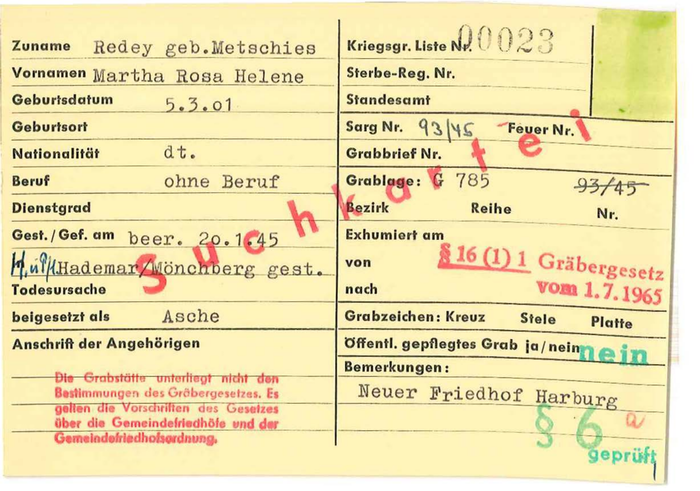 Zuname Redey geb.Metschies
Vornamen Martha Rosa Helene
Geburtsdatum 5.3.01
Geburtsort
Nationalität dt.
Beruf ohne Beruf
Dienstgrad
Gest./Gef. am beer. 20.1.45
Hademar/Mönchberg gest.
Todesursache
beigesetzt als Asche
Anschrift der Angehörigen
Die Grabstätte unterliegt nicht den
Bestimmungen des Gräbergesetzes. Es
gelten die Vorschriften des Gesetzes
über die Gemeindefriedhöfe und der
Gemeindefriedhofsordnung.
Suchkartei
Kriegsgr. Liste Nr. 00023
Sterbe-Reg. Nr.
Standesamt
Sarg Nr. 93/45 Feuer Nr.
Grabbrief Nr.
Grablage: G 785 93/45
Bezirk Reihe Nr.
Exhumiert am
von § 16 (1) 1 Gräbergesetz
nach vom 1.7.1965
Grabzeichen: Kreuz Stele Platte
Öffentl. gepflegtes Grab ja/nein nein
Bemerkungen:
Neuer Friedhof Harburg
§ 6 a
geprüft